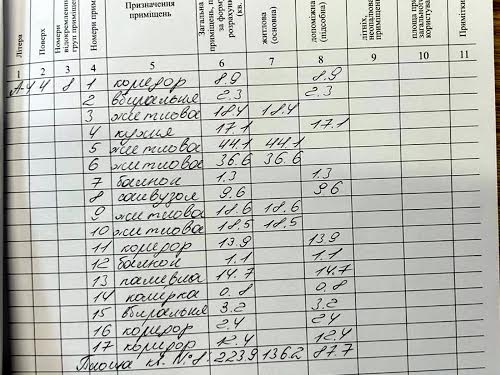 Літера Поверх Номери відокремлених груп приміщень Номери прим Призначення приміщень Загальна приміщень за форму розрахунк (кв. житлова (основна) допоміжна (підсобна) літніх, неопалюв приміщень площа пр загального користува Примітки
1 2 3 4 5 6 7 8 9 10 11
А-4 4 8 1 коридор 8.9 8.9
2 вбиральня 2.3 2.3
3 житлова 18.4 18.4
4 кухня 17.1 17.1
5 житлова 44.1 44.1
6 житлова 36.6 36.6
7 балкон 1.3 1.3
8 санвузол 9.6 9.6
9 житлова 18.6 18.6
10 житлова 18.5 18.5
11 коридор 13.9 13.9
12 балкон 1.1 1.1
13 14.7 14.7
14 комірка 0.8 0.8
15 вбиральня 3.2 3.2
16 коридор 2.4 2.4
17 коридор 12.4 12.4
Площа кв. №8: 223.9 136.2 87.7